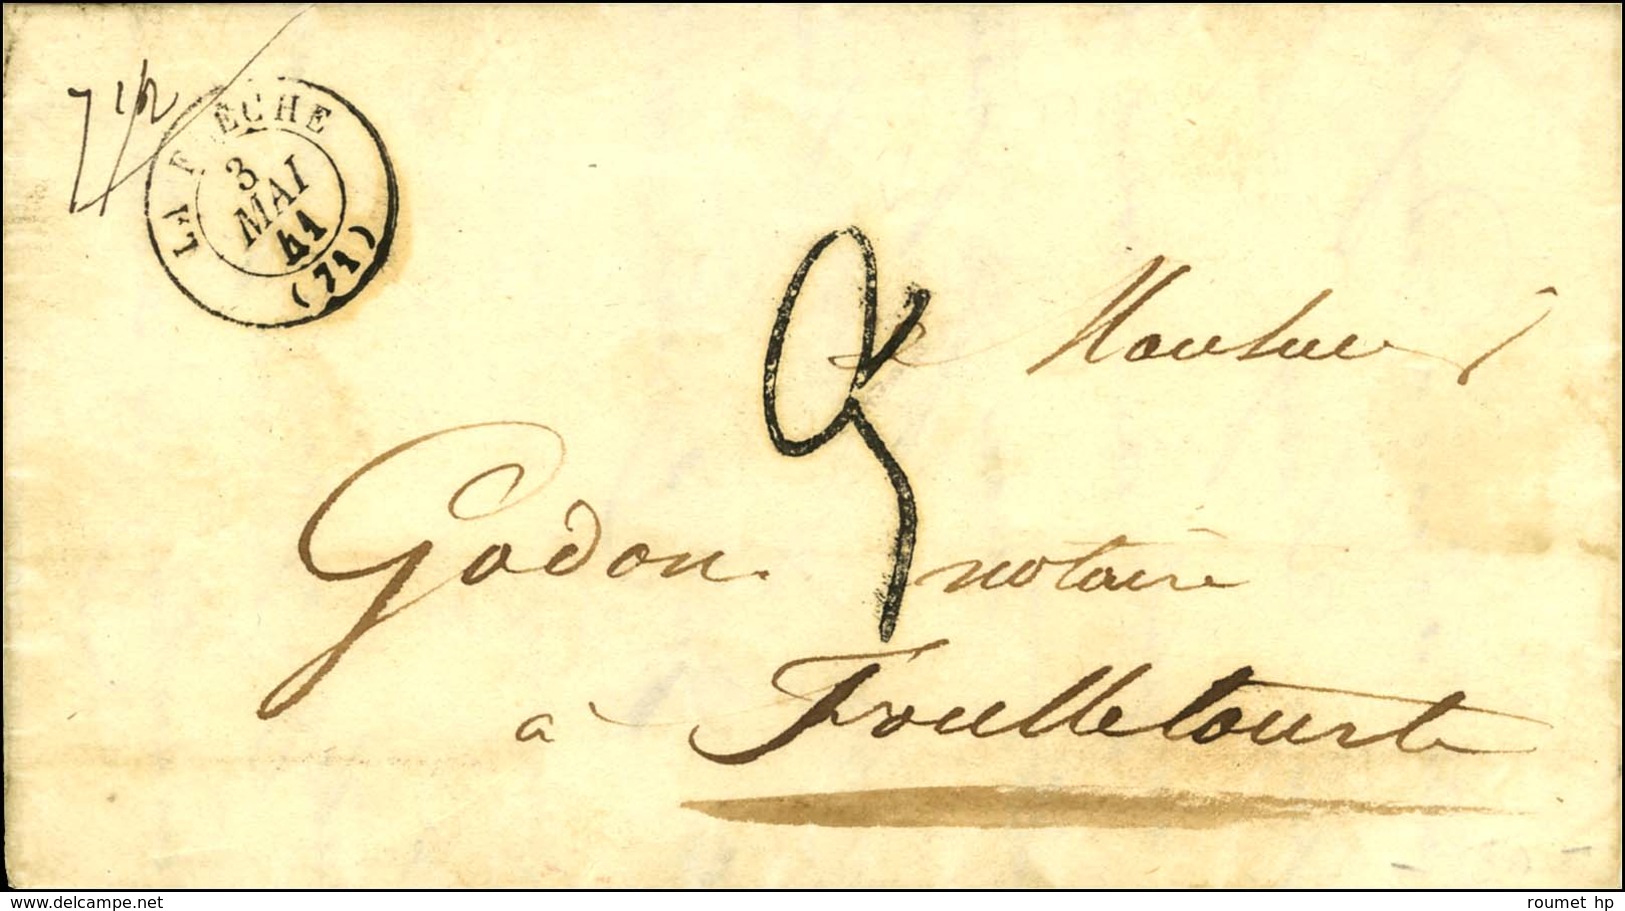 7 1/2
LA FLÈCHE
3
MAI
41
(71)
Monsieur
Godon notaire
à Foulletourte
www.delcampe.net
roumet hp